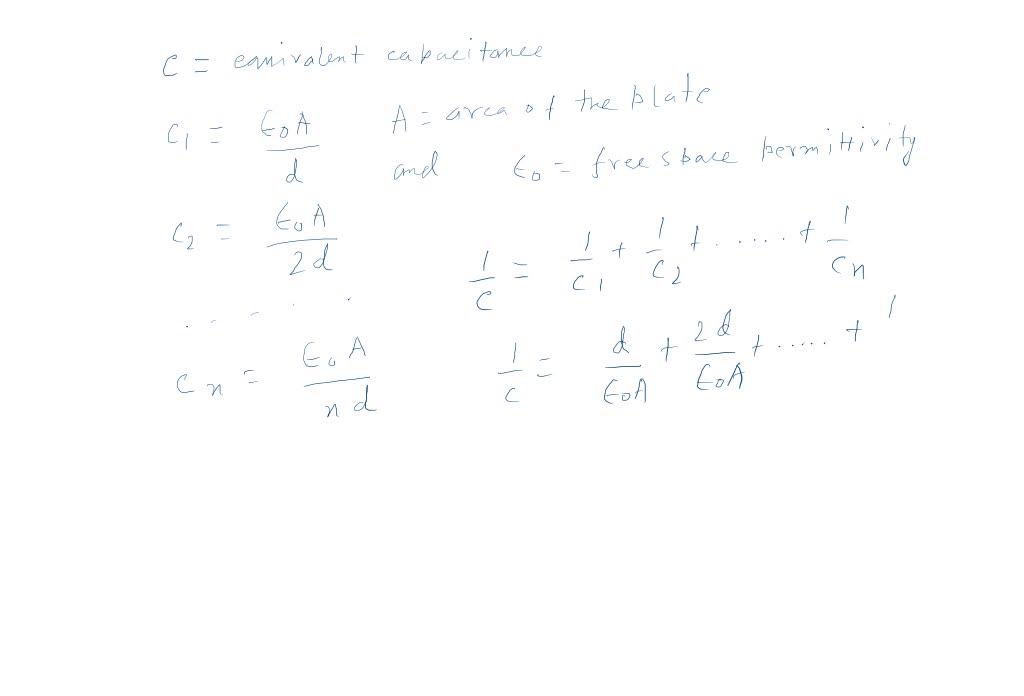 C = equivalent capacitance
C₁ = ϵ₀A / d    A = area of the plate
and ϵ₀ = free space permittivity
C₂ = ϵ₀A / 2d
1/C = 1/C₁ + 1/C₂ + ...... + 1/Cn
. . . . .
Cn = ϵ₀A / nd
1/C = d/ϵ₀A + 2d/ϵ₀A + ..... +